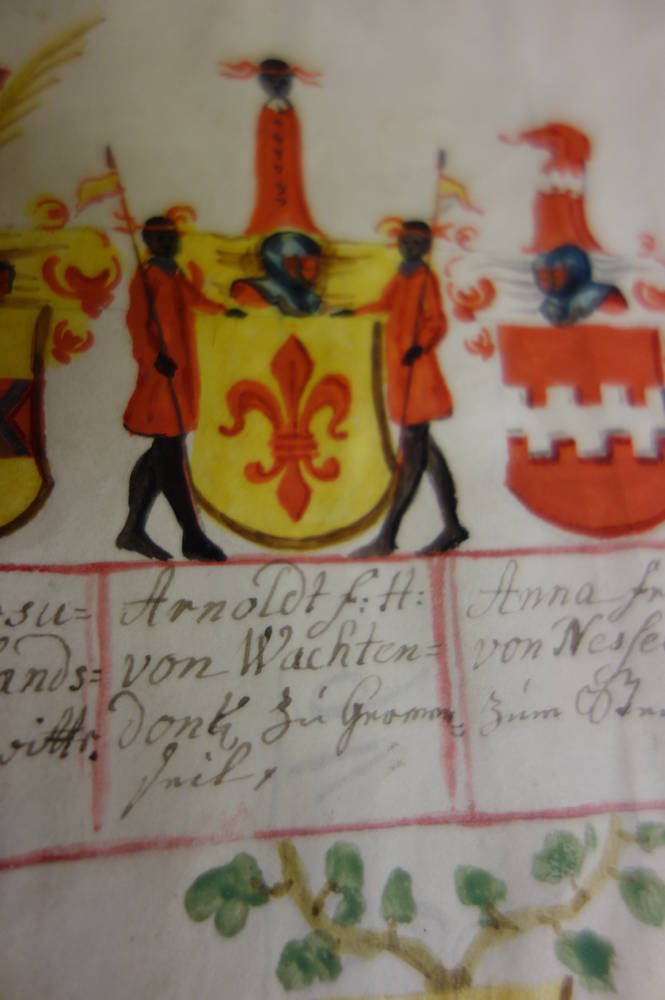 su=
ands=
Arnoldt f: H:
von Wachten=
donk zu Gremm=
seil,
Anna fr
von Nesse
zum Ste